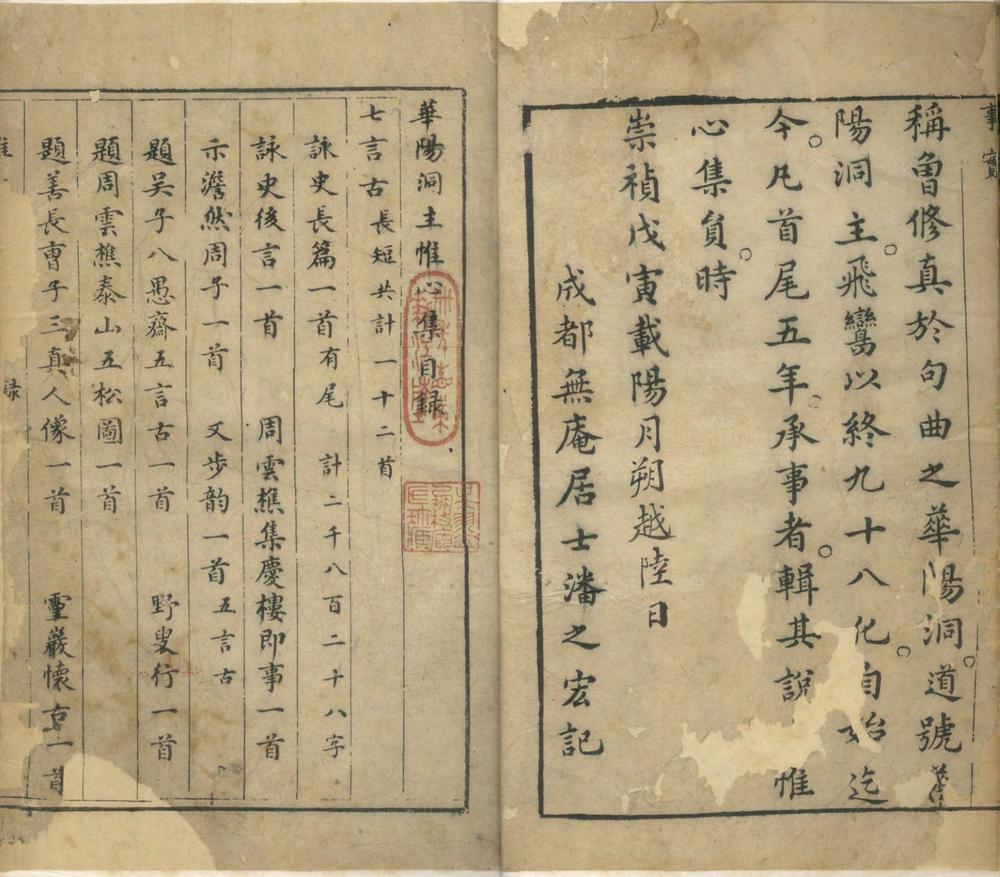 事實
稱曾修真於句曲之華陽洞道號華
陽洞主飛鸞以終九十八化自始迄
今凡首尾五年承事者輯其說惟
心集貟時
崇禎戊寅載陽月朔越陸日
成都無庵居士潘之宏記
華陽洞主惟心集目録
七言古長短共計一十二首
詠史長篇一首有尾 計二千八百二十八字
詠史後言一首 周雲樵集慶樓即事一首
示澹然周子一首 又步韵一首五言古
題吴子八愚齋五言古一首 野叟行一首
題周雲樵泰山五松圖一首
題善長曹子三真人像一首 靈巖懷古一首
録